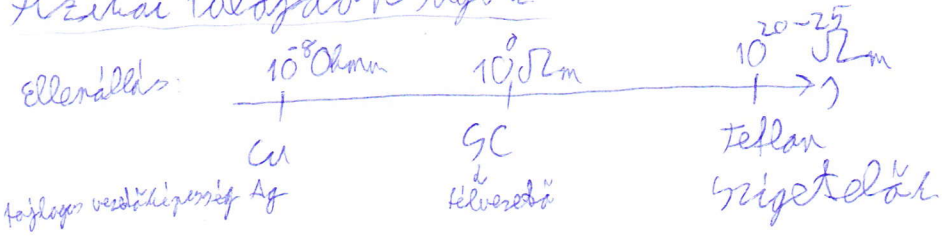 Fizikai tulajdonságok:
Ellenállás: 10⁻⁸ Ohmm 10⁰ Ωm 10²⁰⁻²⁵ Ωm
Cu SC Teflon
fajlagos vezetőképesség Ag félvezető szigetelők